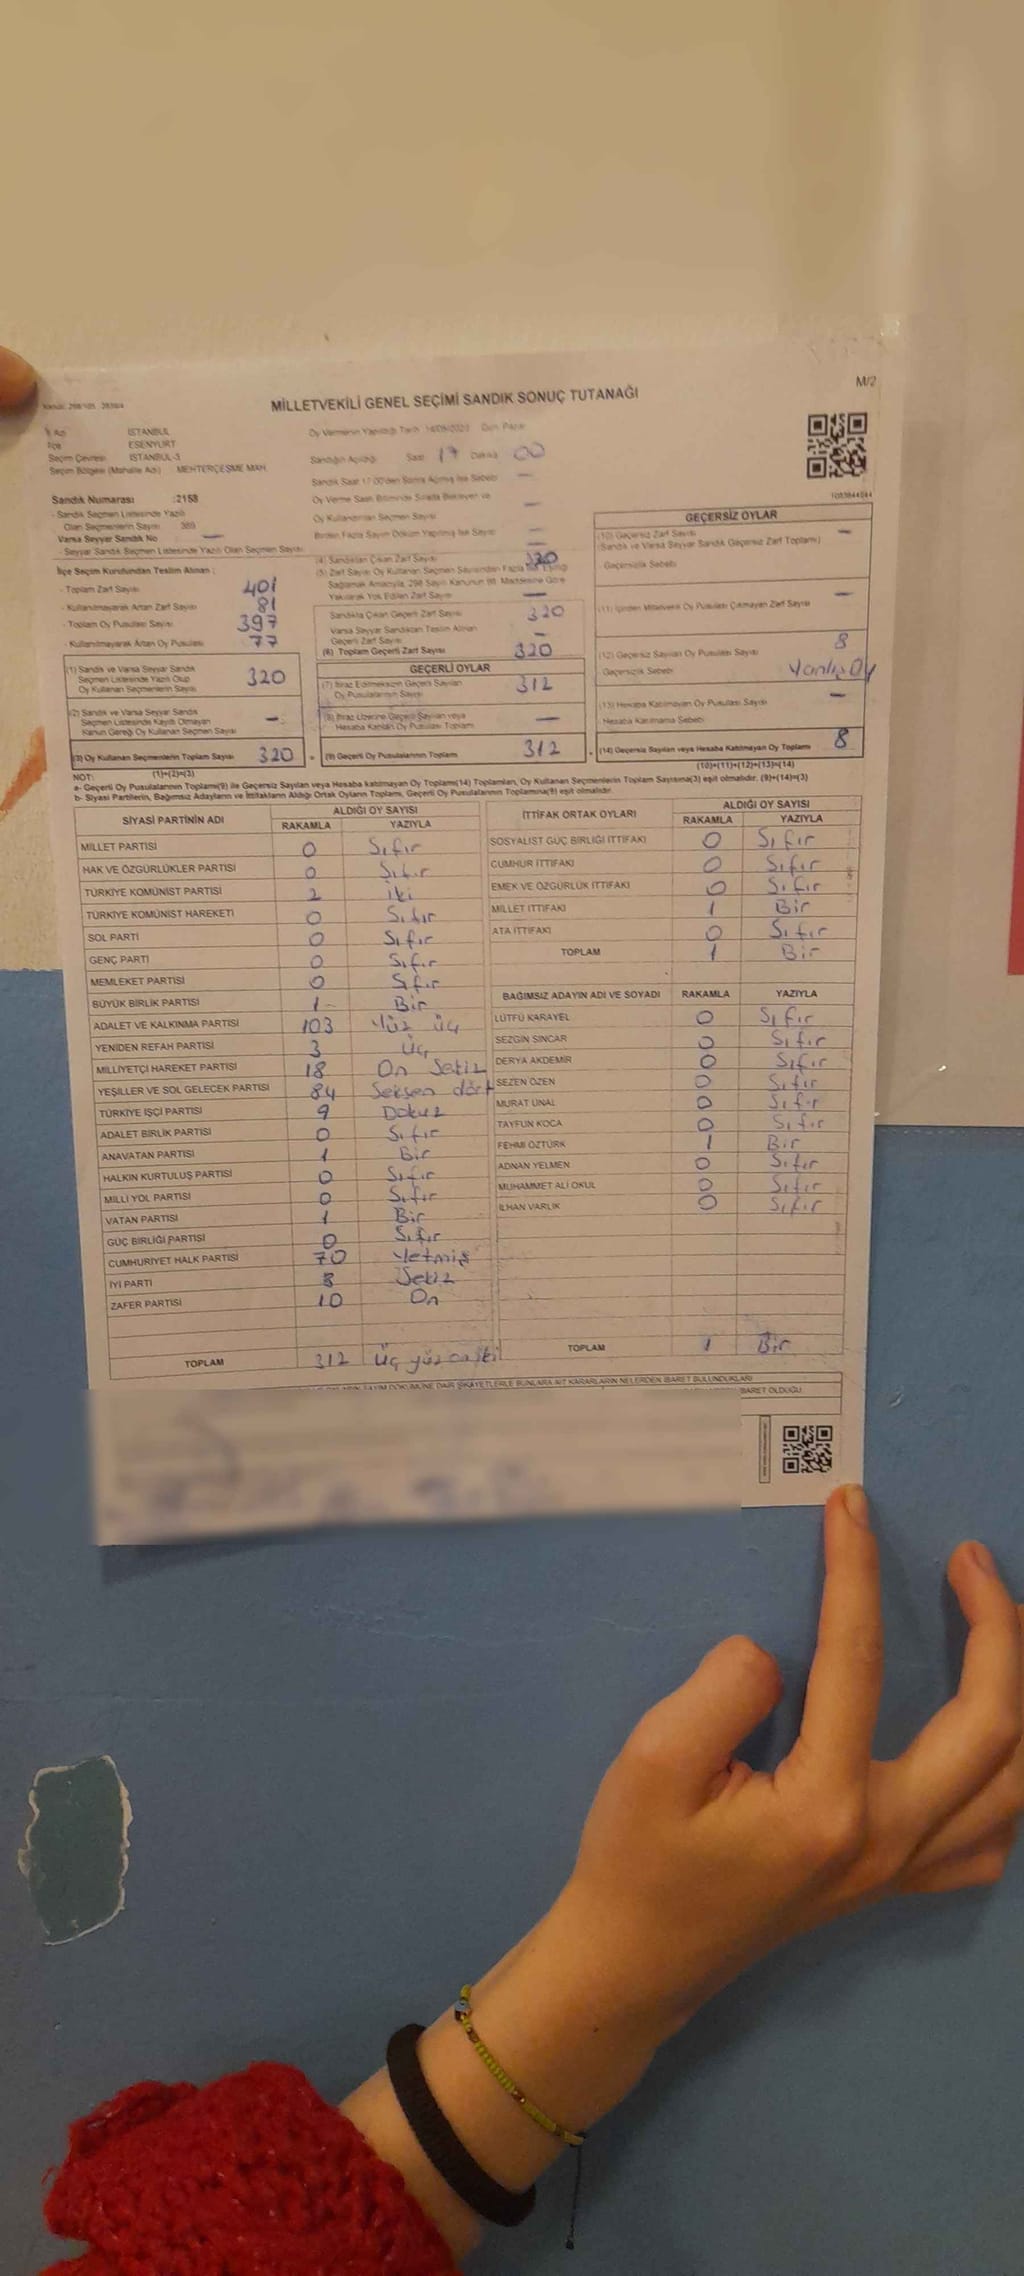 M/2
MİLLETVEKİLİ GENEL SEÇİMİ SANDIK SONUÇ TUTANAĞI
İl Adı İSTANBUL
İlçe ESENYURT
Seçim Çevresi İSTANBUL-3
Seçim Bölgesi (Mahalle Adı) MEHTERÇEŞME MAH.
Sandık Numarası :2158
- Sandık Seçmen Listesinde Yazılı
Olan Seçmenlerin Sayısı 389
Varsa Seyyar Sandık No —
- Seyyar Sandık Seçmen Listesinde Yazılı Olan Seçmen Sayısı
İlçe Seçim Kurulundan Teslim Alınan :
- Toplam Zarf Sayısı 401
- Kullanılmayarak Artan Zarf Sayısı 81
- Toplam Oy Pusulası Sayısı 397
- Kullanılmayarak Artan Oy Pusulası 77
(1) Sandık ve Varsa Seyyar Sandık
Seçmen Listesinde Yazılı Olup
Oy Kullanan Seçmenlerin Sayısı 320
(2) Sandık ve Varsa Seyyar Sandık
Seçmen Listesinde Kayıtlı Olmayan
Kanun Gereği Oy Kullanan Seçmen Sayısı —
(3) Oy Kullanan Seçmenlerin Toplam Sayısı 320
(1)+(2)=(3)
Oy Vermenin Yapıldığı Tarih 14/05/2023 Gün Pazar
Sandığın Açıldığı Saat 17 Dakika 00
Sandık Saat 17.00'den Sonra Açılmış İse Sebebi —
Oy Verme Saati Bitiminde Sırada Bekleyen ve
Oy Kullandırılan Seçmen Sayısı —
Birden Fazla Sayım Döküm Yapılmış İse Sayısı —
(4) Sandıktan Çıkan Zarf Sayısı 320
(5) Zarf Sayısı Oy Kullanan Seçmen Sayısından Fazla İse Eşitliği
Sağlamak Amacıyla, 298 Sayılı Kanunun 98. Maddesine Göre
Yakılarak Yok Edilen Zarf Sayısı —
Sandıkta Çıkan Geçerli Zarf Sayısı 320
Varsa Seyyar Sandıktan Teslim Alınan
Geçerli Zarf Sayısı —
(6) Toplam Geçerli Zarf Sayısı 320
GEÇERLİ OYLAR
(7) İtiraz Edilmeksizin Geçerli Sayılan
Oy Pusulalarının Sayısı 312
(8) İtiraz Üzerine Geçerli Sayılan veya
Hesaba Katılan Oy Pusulası Toplamı —
(9) Geçerli Oy Pusulalarının Toplamı 312
GEÇERSİZ OYLAR
(10) Geçersiz Zarf Sayısı
(Sandık ve Varsa Seyyar Sandık Geçersiz Zarf Toplamı) —
Geçersizlik Sebebi
(11) İçinden Milletvekili Oy Pusulası Çıkmayan Zarf Sayısı —
(12) Geçersiz Sayılan Oy Pusulası Sayısı 8
Geçersizlik Sebebi Yanlış Oy
(13) Hesaba Katılmayan Oy Pusulası Sayısı —
Hesaba Katılmama Sebebi
(14) Geçersiz Sayılan veya Hesaba Katılmayan Oy Toplamı 8
(10)+(11)+(12)+(13)=(14)
NOT:
a- Geçerli Oy Pusulalarının Toplamı(9) ile Geçersiz Sayılan veya Hesaba katılmayan Oy Toplamı(14) Toplamları, Oy Kullanan Seçmenlerin Toplam Sayısına(3) eşit olmalıdır. (9)+(14)=(3)
b- Siyasi Partilerin, Bağımsız Adayların ve İttifakların Aldığı Ortak Oyların Toplamı, Geçerli Oy Pusulalarının Toplamına(9) eşit olmalıdır.
SİYASİ PARTİNİN ADI ALDIĞI OY SAYISI
RAKAMLA YAZIYLA
MİLLET PARTİSİ 0 Sıfır
HAK VE ÖZGÜRLÜKLER PARTİSİ 0 Sıfır
TÜRKİYE KOMÜNİST PARTİSİ 2 iki
TÜRKİYE KOMÜNİST HAREKETİ 0 Sıfır
SOL PARTİ 0 Sıfır
GENÇ PARTİ 0 Sıfır
MEMLEKET PARTİSİ 0 Sıfır
BÜYÜK BİRLİK PARTİSİ 1 Bir
ADALET VE KALKINMA PARTİSİ 103 Yüz üç
YENİDEN REFAH PARTİSİ 3 Üç
MİLLİYETÇİ HAREKET PARTİSİ 18 On Sekiz
YEŞİLLER VE SOL GELECEK PARTİSİ 84 Seksen dört
TÜRKİYE İŞÇİ PARTİSİ 9 Dokuz
ADALET BİRLİK PARTİSİ 0 Sıfır
ANAVATAN PARTİSİ 1 Bir
HALKIN KURTULUŞ PARTİSİ 0 Sıfır
MİLLİ YOL PARTİSİ 0 Sıfır
VATAN PARTİSİ 1 Bir
GÜÇ BİRLİĞİ PARTİSİ 0 Sıfır
CUMHURİYET HALK PARTİSİ 70 Yetmiş
İYİ PARTİ 8 Sekiz
ZAFER PARTİSİ 10 On
TOPLAM 312 Üç yüz on iki
İTTİFAK ORTAK OYLARI ALDIĞI OY SAYISI
RAKAMLA YAZIYLA
SOSYALİST GÜÇ BİRLİĞİ İTTİFAKI 0 Sıfır
CUMHUR İTTİFAKI 0 Sıfır
EMEK VE ÖZGÜRLÜK İTTİFAKI 0 Sıfır
MİLLET İTTİFAKI 1 Bir
ATA İTTİFAKI 0 Sıfır
TOPLAM 1 Bir
BAĞIMSIZ ADAYIN ADI VE SOYADI RAKAMLA YAZIYLA
LÜTFÜ KARAYEL 0 Sıfır
SEZGİN SİNCAR 0 Sıfır
DERYA AKDEMİR 0 Sıfır
SEZEN ÖZEN 0 Sıfır
MURAT ÜNAL 0 Sıfır
TAYFUN KOCA 0 Sıfır
FEHMİ ÖZTÜRK 1 Bir
ADNAN YELMEN 0 Sıfır
MUHAMMET ALİ OKUL 0 Sıfır
İLHAN VARLIK 0 Sıfır
TOPLAM 1 Bir
DÖKÜMÜNE DAİR ŞİKAYETLERLE BUNLARA AİT KARARLARIN NELERDEN İBARET BULUNDUKLARI
İBARET OLDUĞU